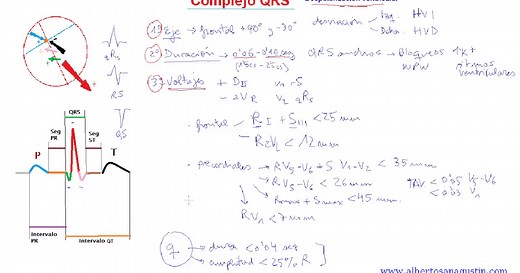 Complejo QRS
Despolarización ventricular
1º Eje → frontal +90º y -30º
desviación
Izq. HVI
Dcha. HVD
2º Duración → 0'06 - 0'10 seg
QRS anchos → Bloqueos
↑K+
WPW
ritmos
ventriculares
3º Voltajes + DII
- aVR
V2 qRs
qRs
RS
QS
frontal
R I + S III < 25 mm
R aVL < 12 mm
precordiales → R V5-V6 + S V1-V2 < 35 mm
R V5-V6 < 26 mm
Rmax + Smax < 45 mm
R V1 < 7 mm
TAV < 0'05 V5-V6
< 0'03 V1
q → durac < 0'04 seg
amplitud < 25% R
QRS
Seg
PR
Seg
ST
P
T
Intervalo
PR
Intervalo QT
www.albertosanagustin.com